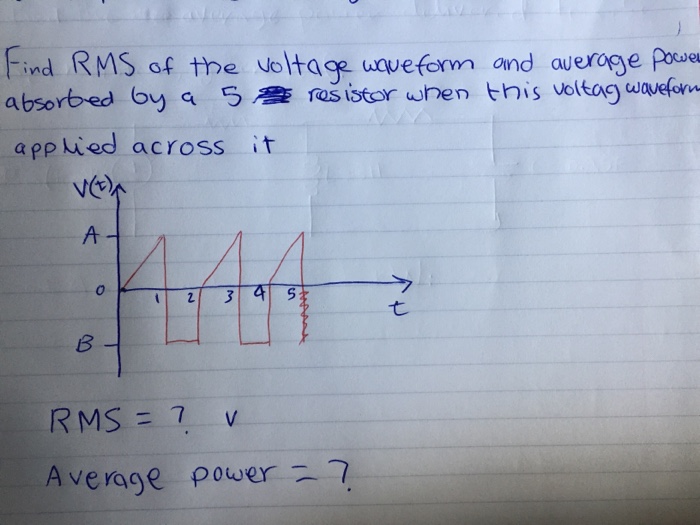 Find RMS of the voltage waveform and average power
absorbed by a 5 resistor when this voltag waveform
applied across it
V(t)
A
0
1 2 3 4 5
t
B
RMS = ? v
Average power = ?